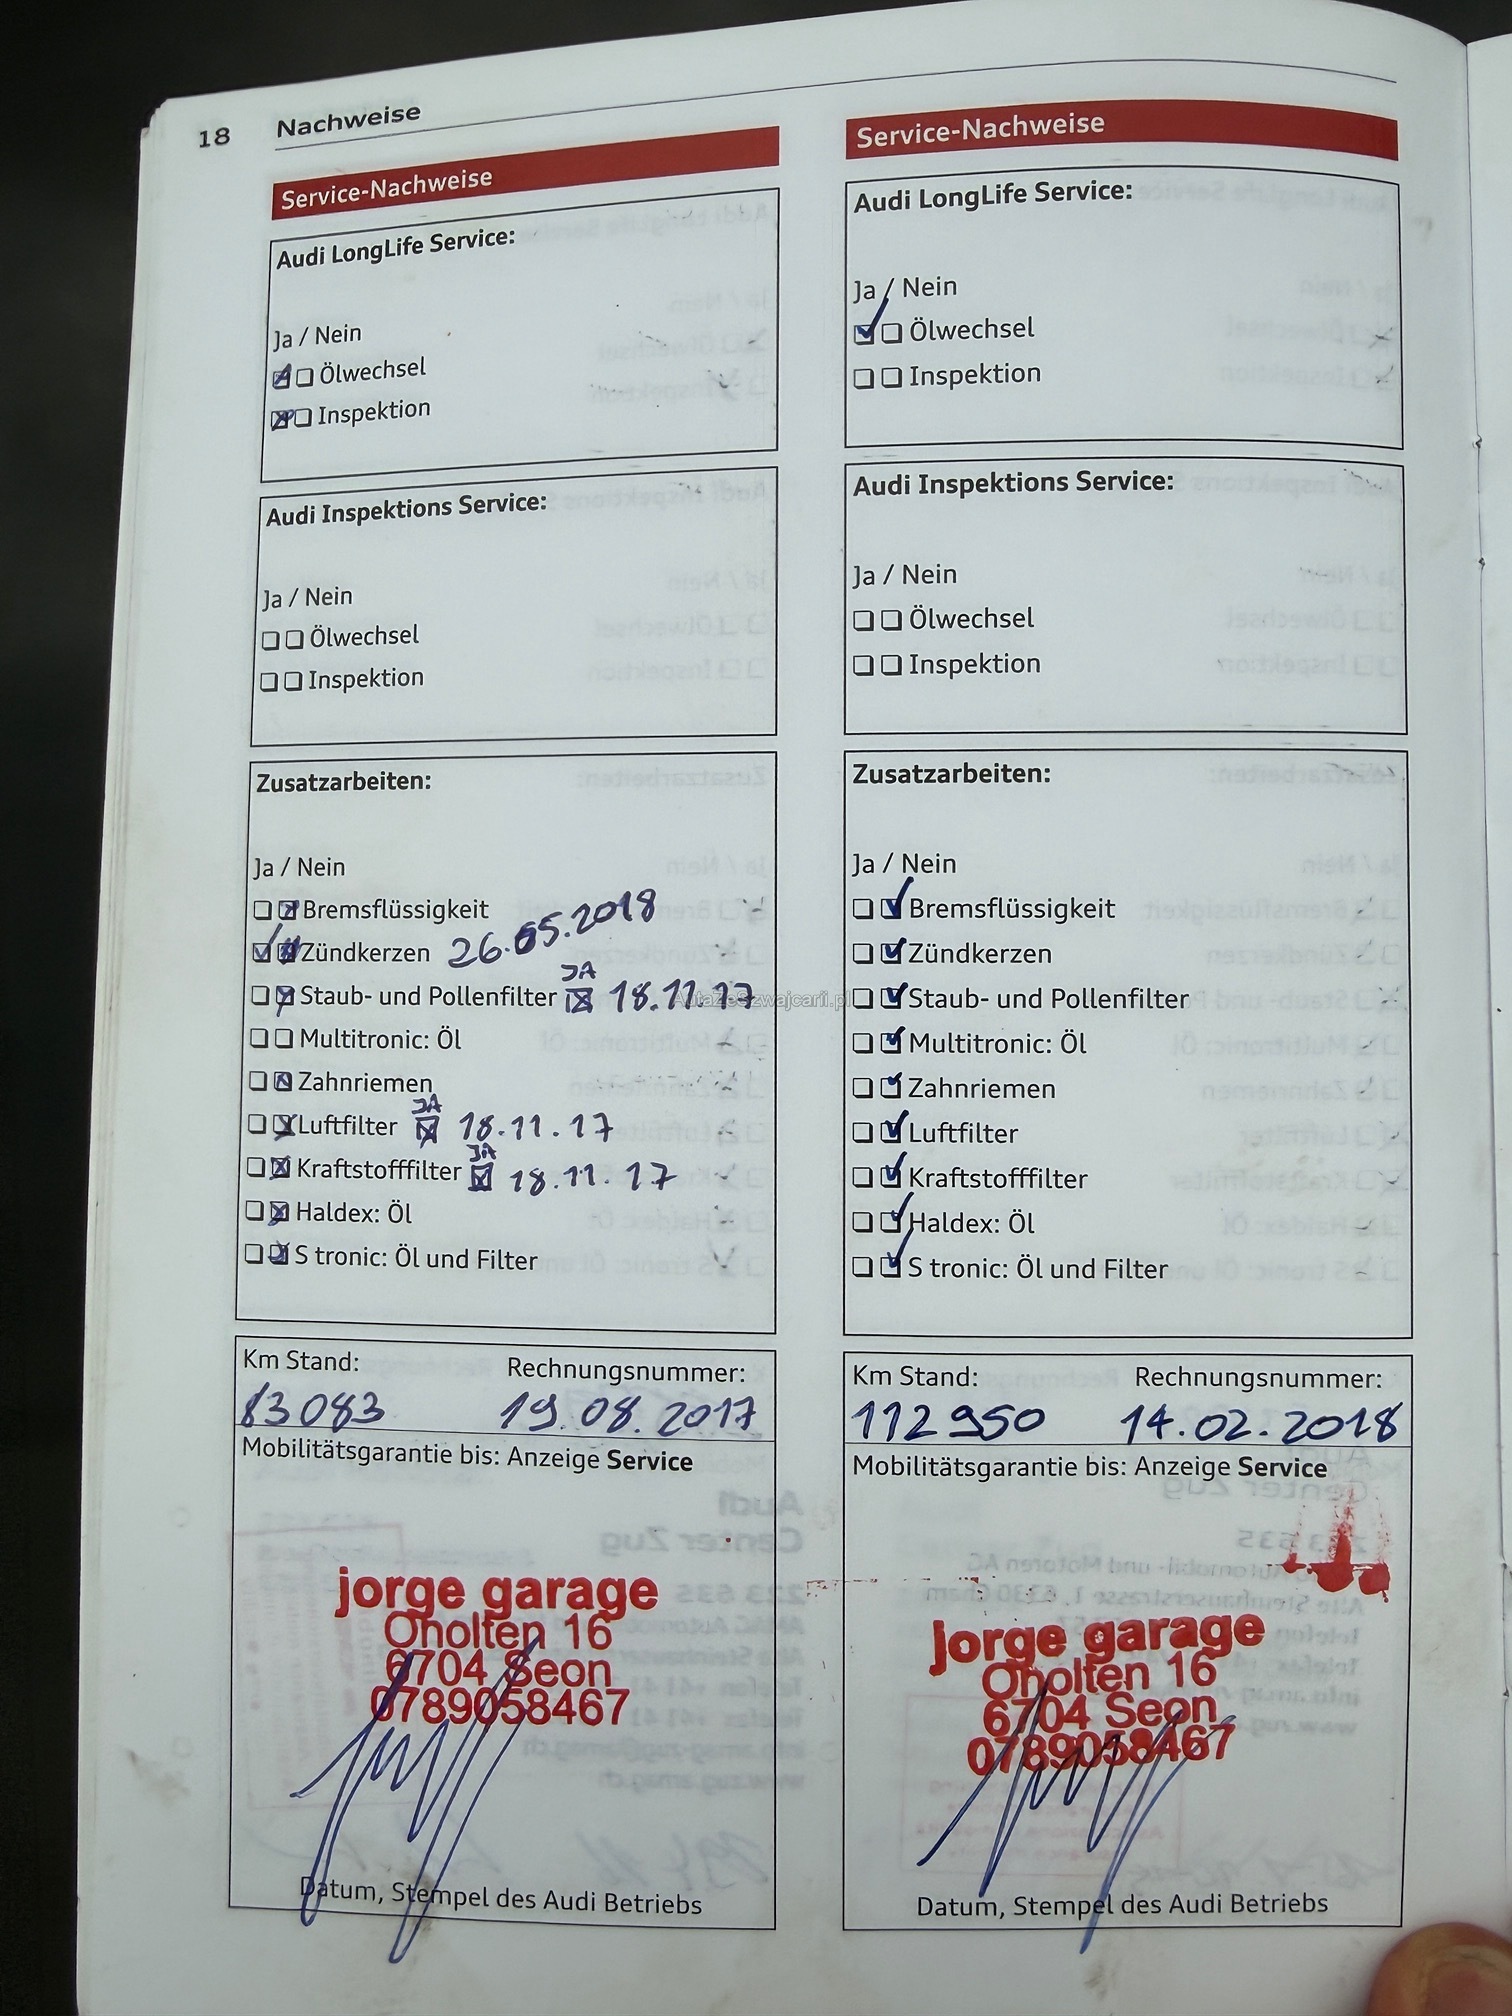 18 Nachweise
Service-Nachweise
Audi LongLife Service:
Ja / Nein
Ölwechsel
Inspektion
Audi Inspektions Service:
Ja / Nein
Ölwechsel
Inspektion
Zusatzarbeiten:
Ja / Nein
Bremsflüssigkeit
Zündkerzen 26.05.2018
JA
Staub- und Pollenfilter 18.11.17
Multitronic: Öl
Zahnriemen
JA
Luftfilter 18.11.17
JA
Kraftstofffilter 18.11.17
Haldex: Öl
S tronic: Öl und Filter
Km Stand: Rechnungsnummer:
83083 19.08.2017
Mobilitätsgarantie bis: Anzeige Service
jorge garage
Oholten 16
6704 Seon
0789058467
Datum, Stempel des Audi Betriebs
Service-Nachweise
Audi LongLife Service:
Ja / Nein
Ölwechsel
Inspektion
Audi Inspektions Service:
Ja / Nein
Ölwechsel
Inspektion
Zusatzarbeiten:
Ja / Nein
Bremsflüssigkeit
Zündkerzen
Staub- und Pollenfilter
Multitronic: Öl
Zahnriemen
Luftfilter
Kraftstofffilter
Haldex: Öl
S tronic: Öl und Filter
Km Stand: Rechnungsnummer:
112950 14.02.2018
Mobilitätsgarantie bis: Anzeige Service
jorge garage
Oholten 16
6704 Seon
0789058467
Datum, Stempel des Audi Betriebs
AutazeSzwajcarii.pl